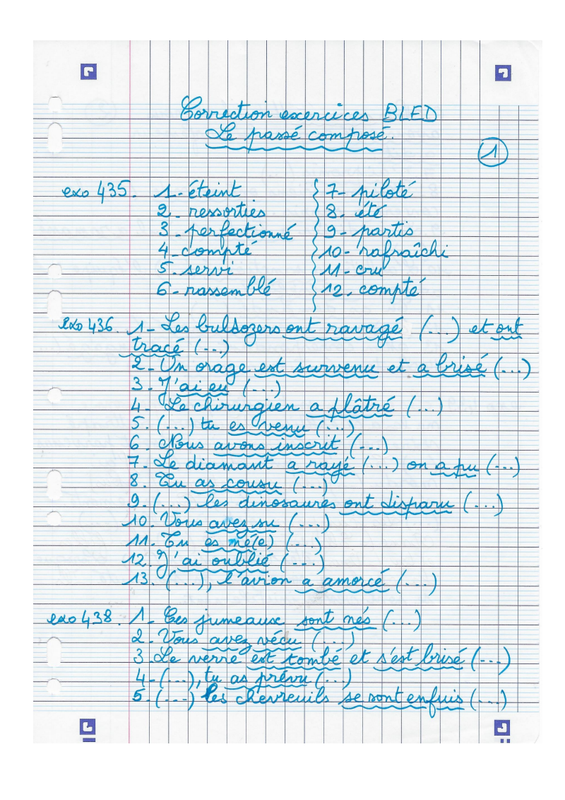 Correction exercices BLED
Le passé composé.
1
exo 435. 1- éteint 7- piloté
2- ressorties 8- été
3- perfectionné 9- partis
4- compté 10- rafraîchi
5- servi 11- cru
6- rassemblé 12- compté
exo 436. 1- Les bulldozers ont ravagé (...) et ont
tracé (...)
2- Un orage est survenu et a brisé (...)
3- J'ai eu (...)
4- Le chirurgien a plâtré (...)
5- (...) tu es venu (...)
6- Nous avons inscrit (...)
7- Le diamant a rayé (...) on a pu (...)
8- Tu as cousu (...)
9- (...) les dinosaures ont disparu (...)
10- Vous avez su (...)
11- Tu es né(e) (...)
12- J'ai oublié (...)
13- (...), l'avion a amorcé (...)
exo 438. 1- Ces jumeaux sont nés (...)
2- Vous avez vécu (...)
3- Le verre est tombé et s'est brisé (...)
4- (...), tu as prévu (...)
5- (...) les chevreuils se sont enfuis (...)